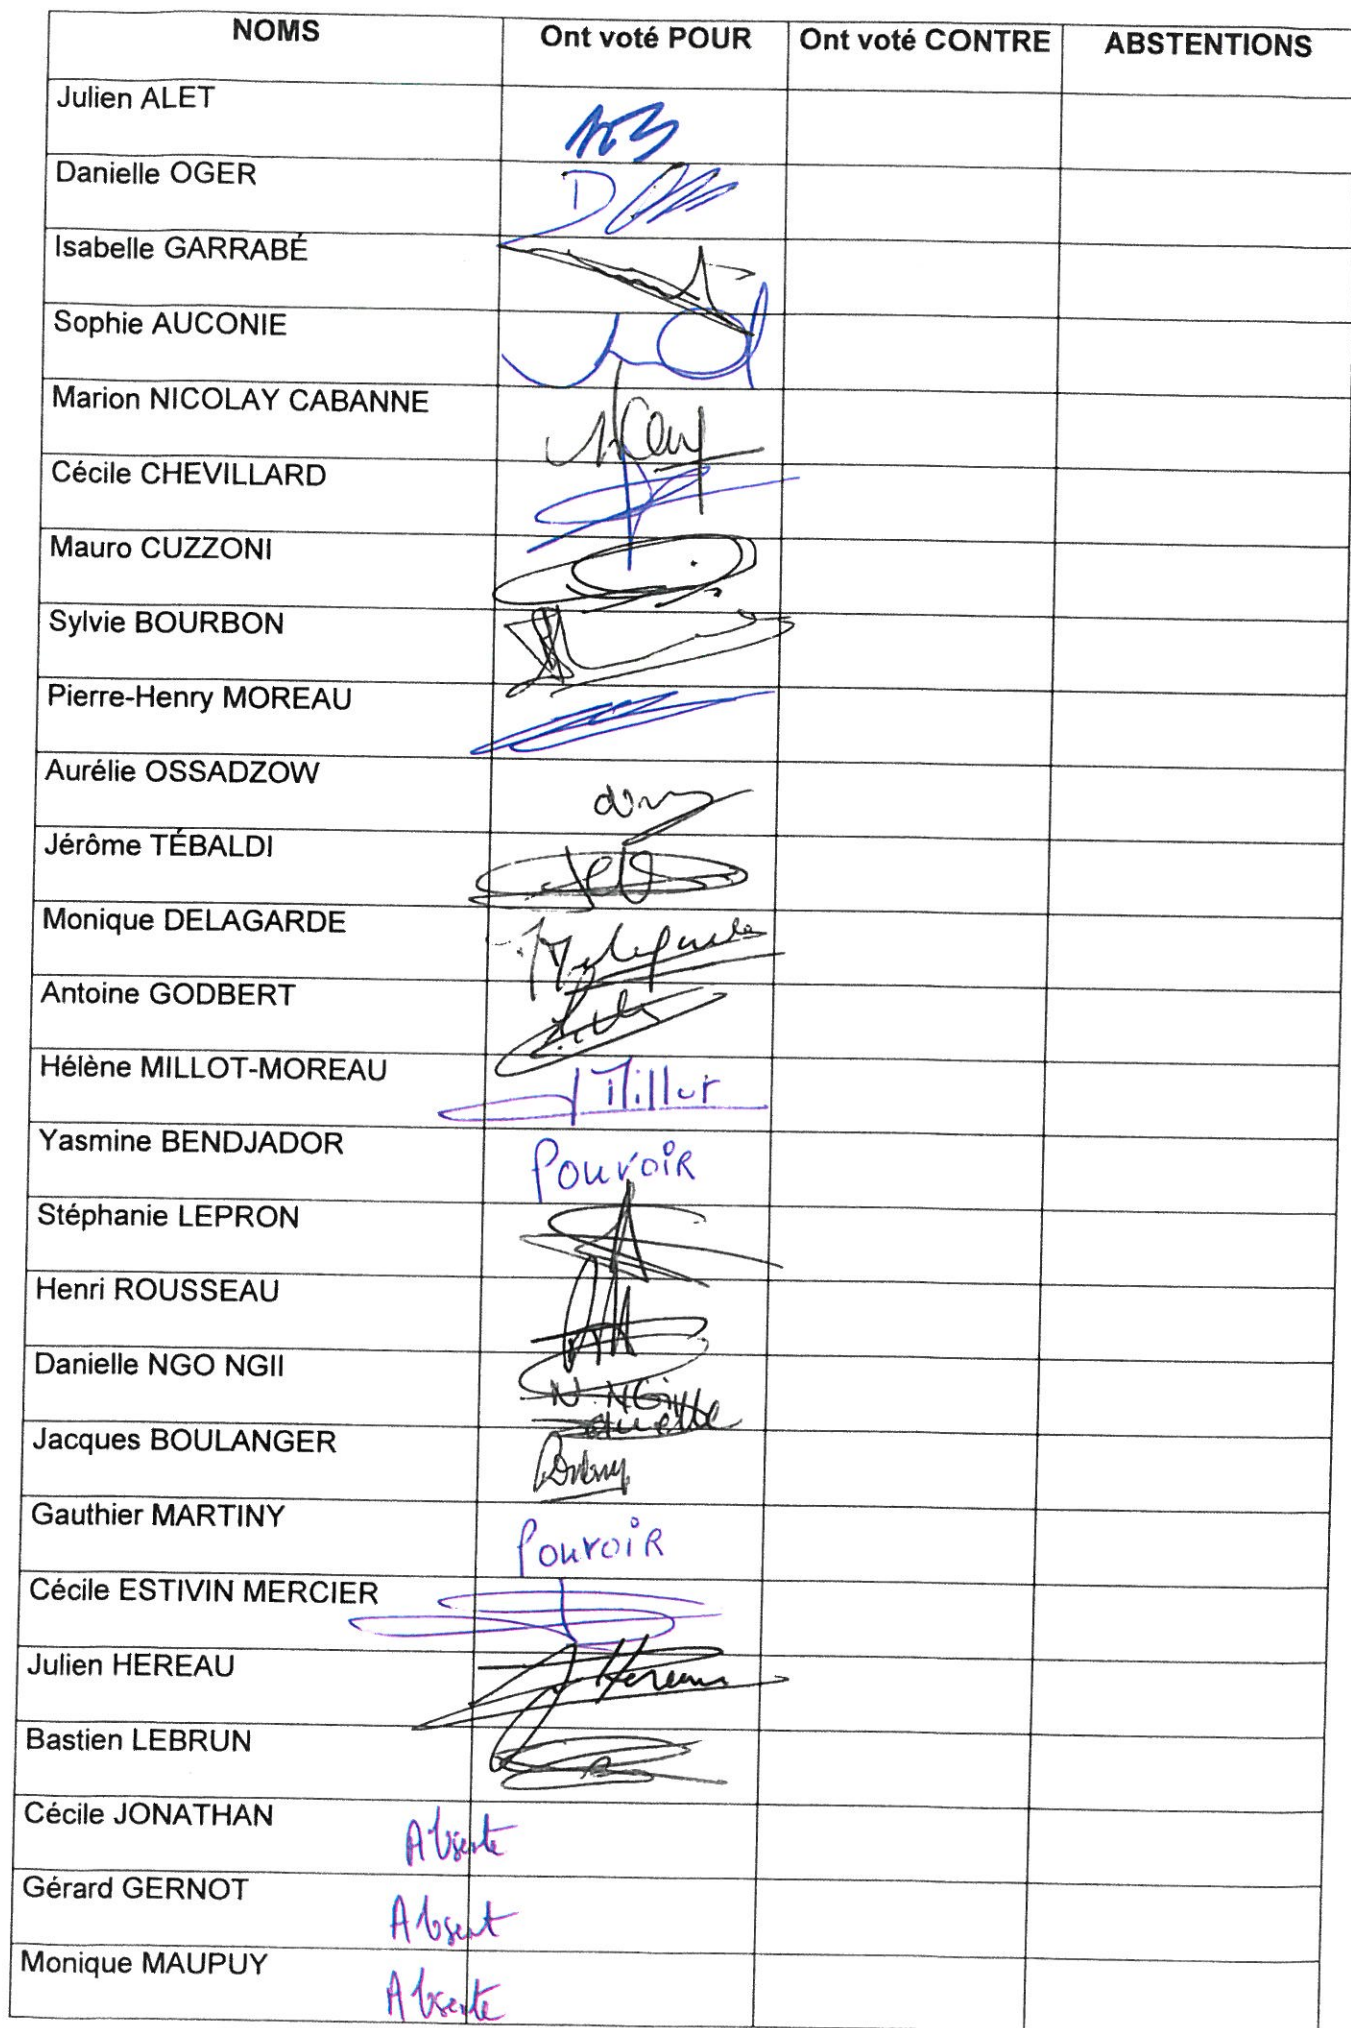 NOMS Ont voté POUR Ont voté CONTRE ABSTENTIONS
Julien ALET
Danielle OGER
Isabelle GARRABÉ
Sophie AUCONIE
Marion NICOLAY CABANNE
Cécile CHEVILLARD
Mauro CUZZONI
Sylvie BOURBON
Pierre-Henry MOREAU
Aurélie OSSADZOW
Jérôme TÉBALDI
Monique DELAGARDE
Antoine GODBERT
Hélène MILLOT-MOREAU
Millot
Yasmine BENDJADOR
Pouvoir
Stéphanie LEPRON
Henri ROUSSEAU
Danielle NGO NGII
Jacques BOULANGER
Gauthier MARTINY
Pouvoir
Cécile ESTIVIN MERCIER
Julien HEREAU
Hereau
Bastien LEBRUN
Cécile JONATHAN
Absente
Gérard GERNOT
Absent
Monique MAUPUY
Absente